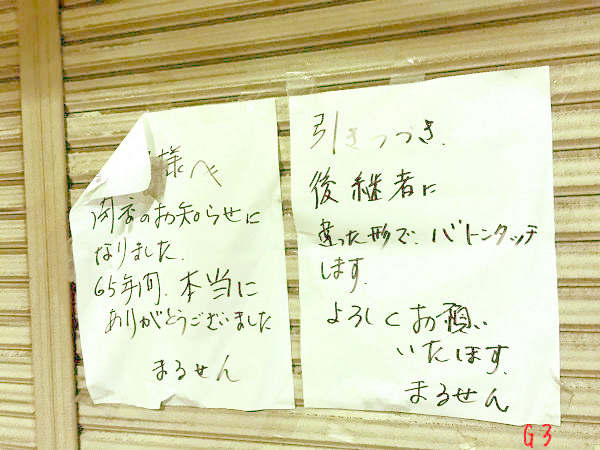 様へ
閉店のお知らせに
なりました.
65年間.本当に
ありがとうございました
まるせん
引きつづき.
後継者に
違った形で.バトンタッチ
します.
よろしくお願い
いたします.
まるせん
G3